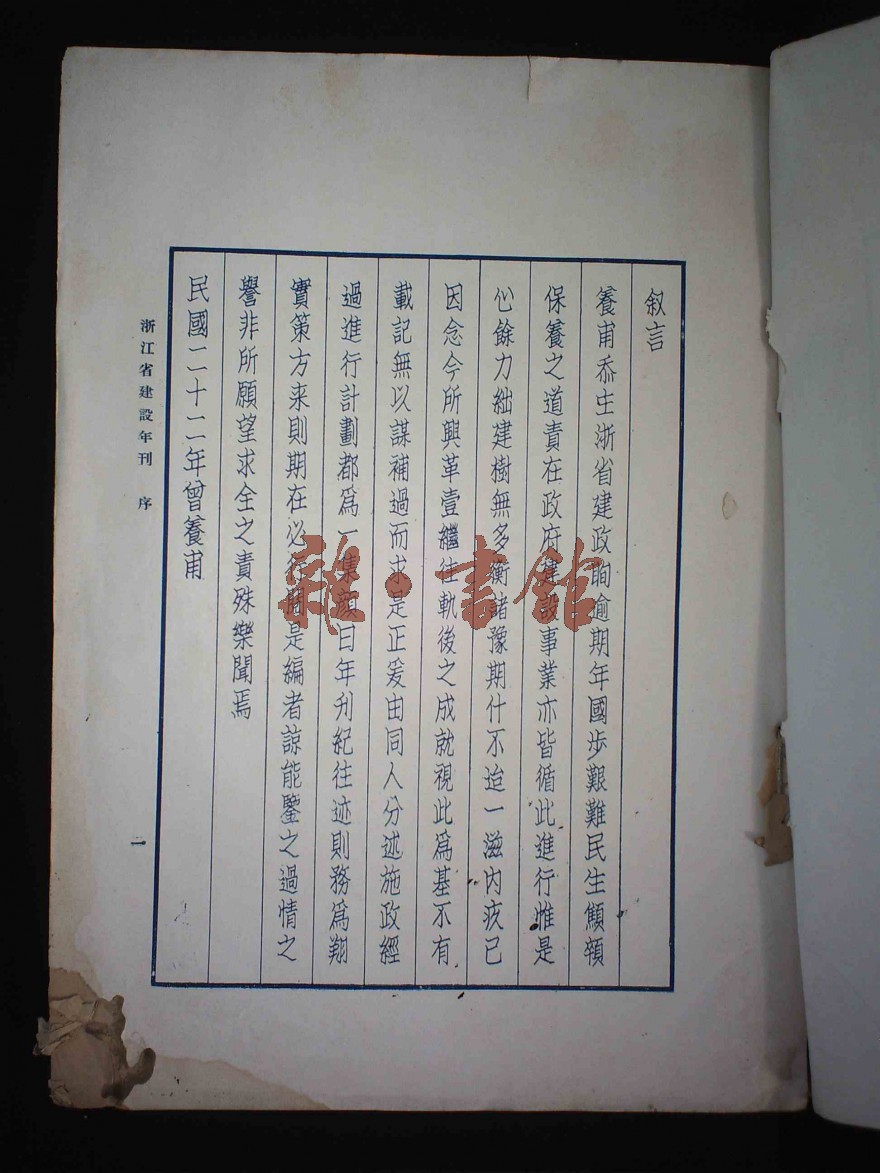 叙言
養甫忝主浙省建政晌逾期年國步艱難民生顦顇
保養之道責在政府建設事業亦皆循此進行惟是
心餘力絀建樹無多衡諸豫期什不迨一滋內疚已
因念今所興革壹繼往軌後之成就視此爲基不有
載記無以謀補過而求是正爰由同人分述施政經
過進行計劃都爲一集顏曰年刋紀往述則務爲翔
實策方来則期在必行閱是編者諒能鑒之過情之
譽非所願望求全之責殊樂聞焉
民國二十二年曾養甫
浙江省建設年刊 序
雜·書館